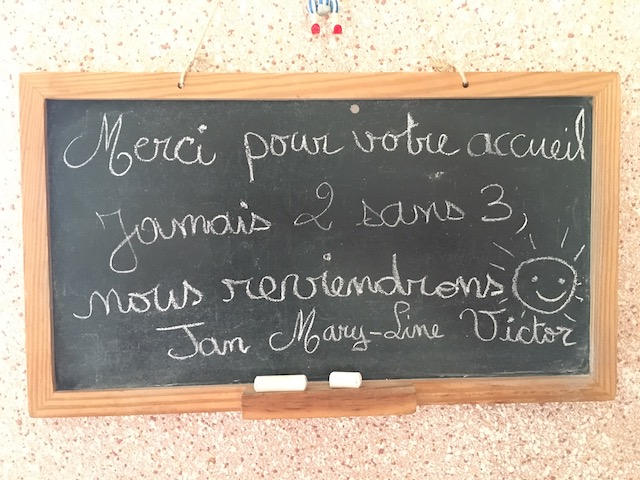 Merci pour votre accueil
Jamais 2 sans 3,
nous reviendrons
Jan Mary-Line Victor